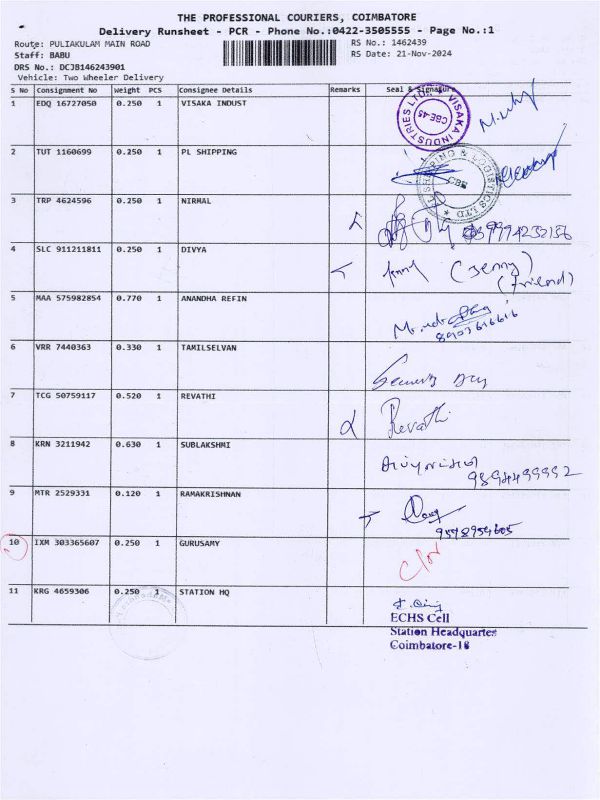 THE PROFESSIONAL COURIERS, COIMBATORE
Delivery Runsheet - PCR - Phone No.:0422-3505555 - Page No.:1
Route: PULIAKULAM MAIN ROAD RS No.: 1462439
Staff: BABU RS Date: 21-Nov-2024
DRS No.: DCJB146243901
Vehicle: Two Wheeler Delivery
S No Consignment No Weight PCS Consignee Details Remarks Seal & Signature
1 EDQ 16727050 0.250 1 VISAKA INDUST
VISAKA INDUSTRIES LTD.
CBE-45
2 TUT 1160699 0.250 1 PL SHIPPING
SHIPPING & LOGISTICS LTD
CBE
3 TRP 4624596 0.250 1 NIRMAL
4 SLC 911211811 0.250 1 DIVYA
(Jenny)
(friend)
5 MAA 575982854 0.770 1 ANANDHA REFIN
8903616616
6 VRR 7440363 0.330 1 TAMILSELVAN
7 TCG 50759117 0.520 1 REVATHI
Revathi
8 KRN 3211942 0.630 1 SUBLAKSHMI
9894499992
9 MTR 2529331 0.120 1 RAMAKRISHNAN
10 IXM 303365607 0.250 1 GURUSAMY
11 KRG 4659306 0.250 1 STATION HQ
ECHS Cell
Station Headquartes
Coimbatore-18